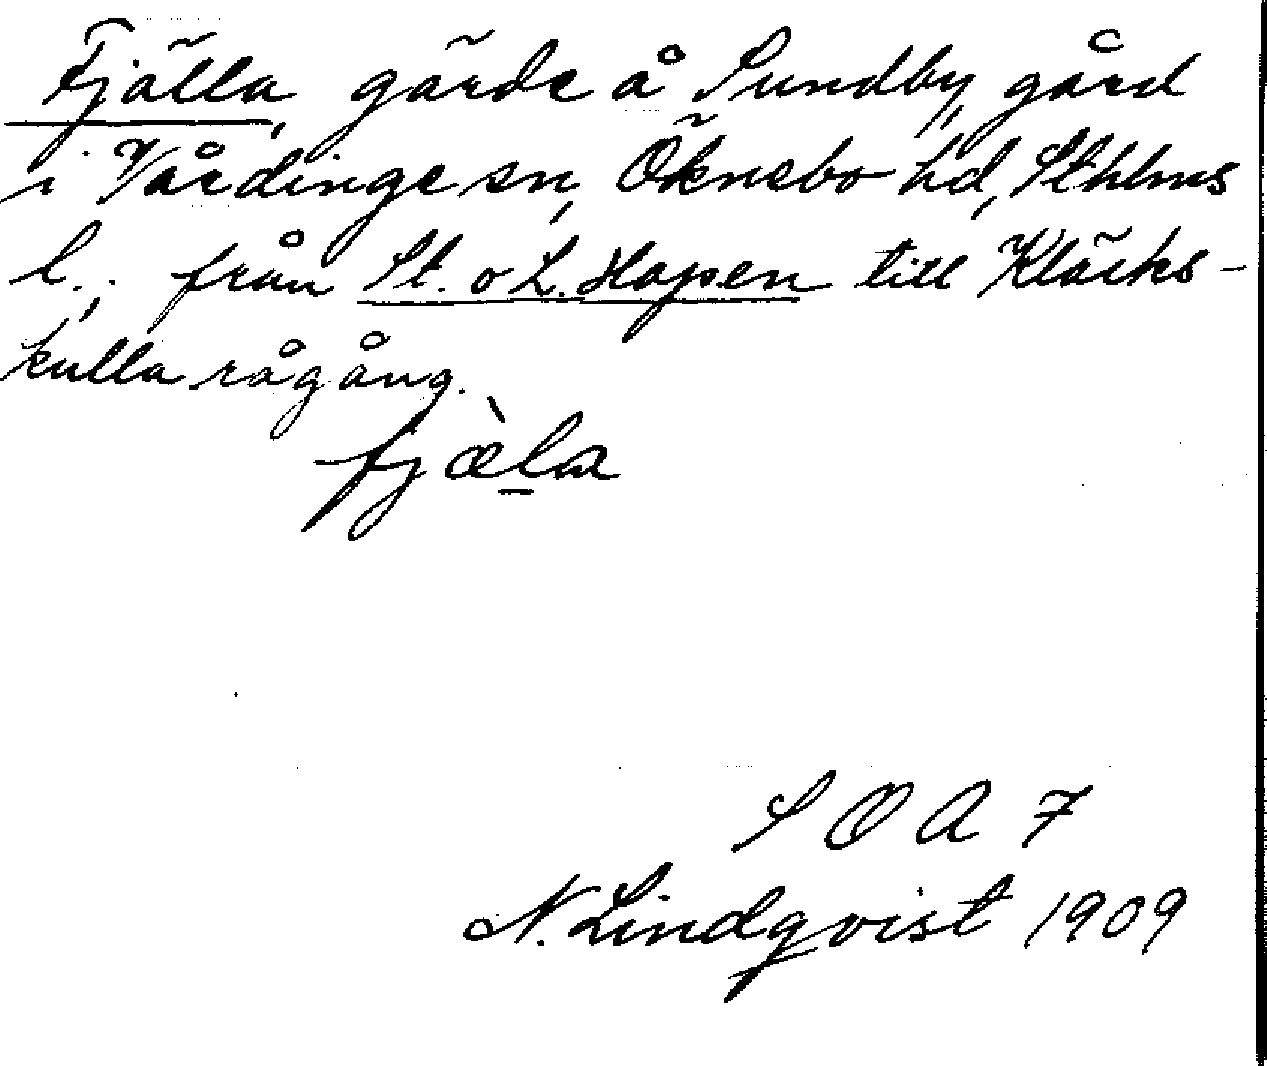 Fjälla, gärde å Sundby gård
i Vårdinge sn, Öknebo hd, Sthlms
l., från St. o L. Hagen till Kläcks-
kulla rågång.
fjæ̀la
S O A 7
N. Lindqvist 1909